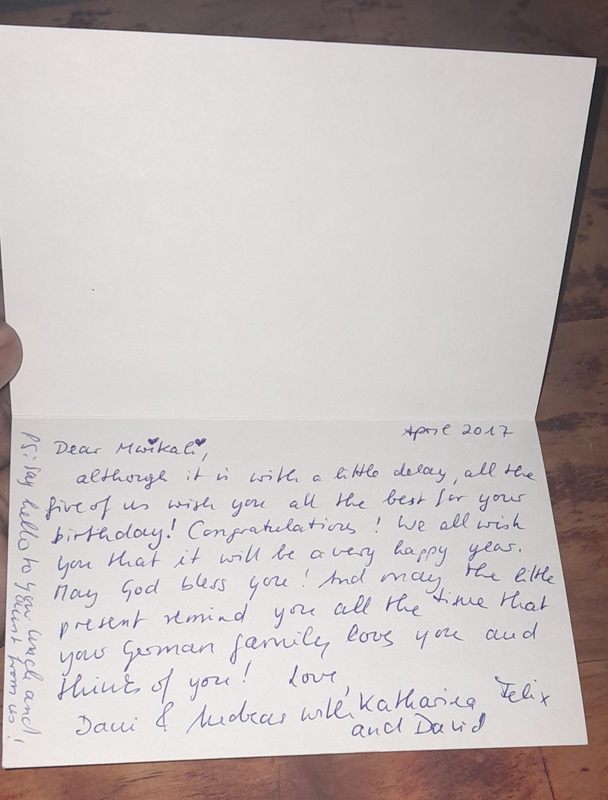 April 2017
Dear Mwikali,
although it is with a little delay, all the
five of us wish you all the best for your
birthday! Congratulations! We all wish
you that it will be a very happy year.
May God bless you! And may the little
present remind you all the time that
your German family loves you and
thinks of you! Love,
Dani & Andreas with Katharina Felix
and David
PS: Say hello to your and
aunt from us!